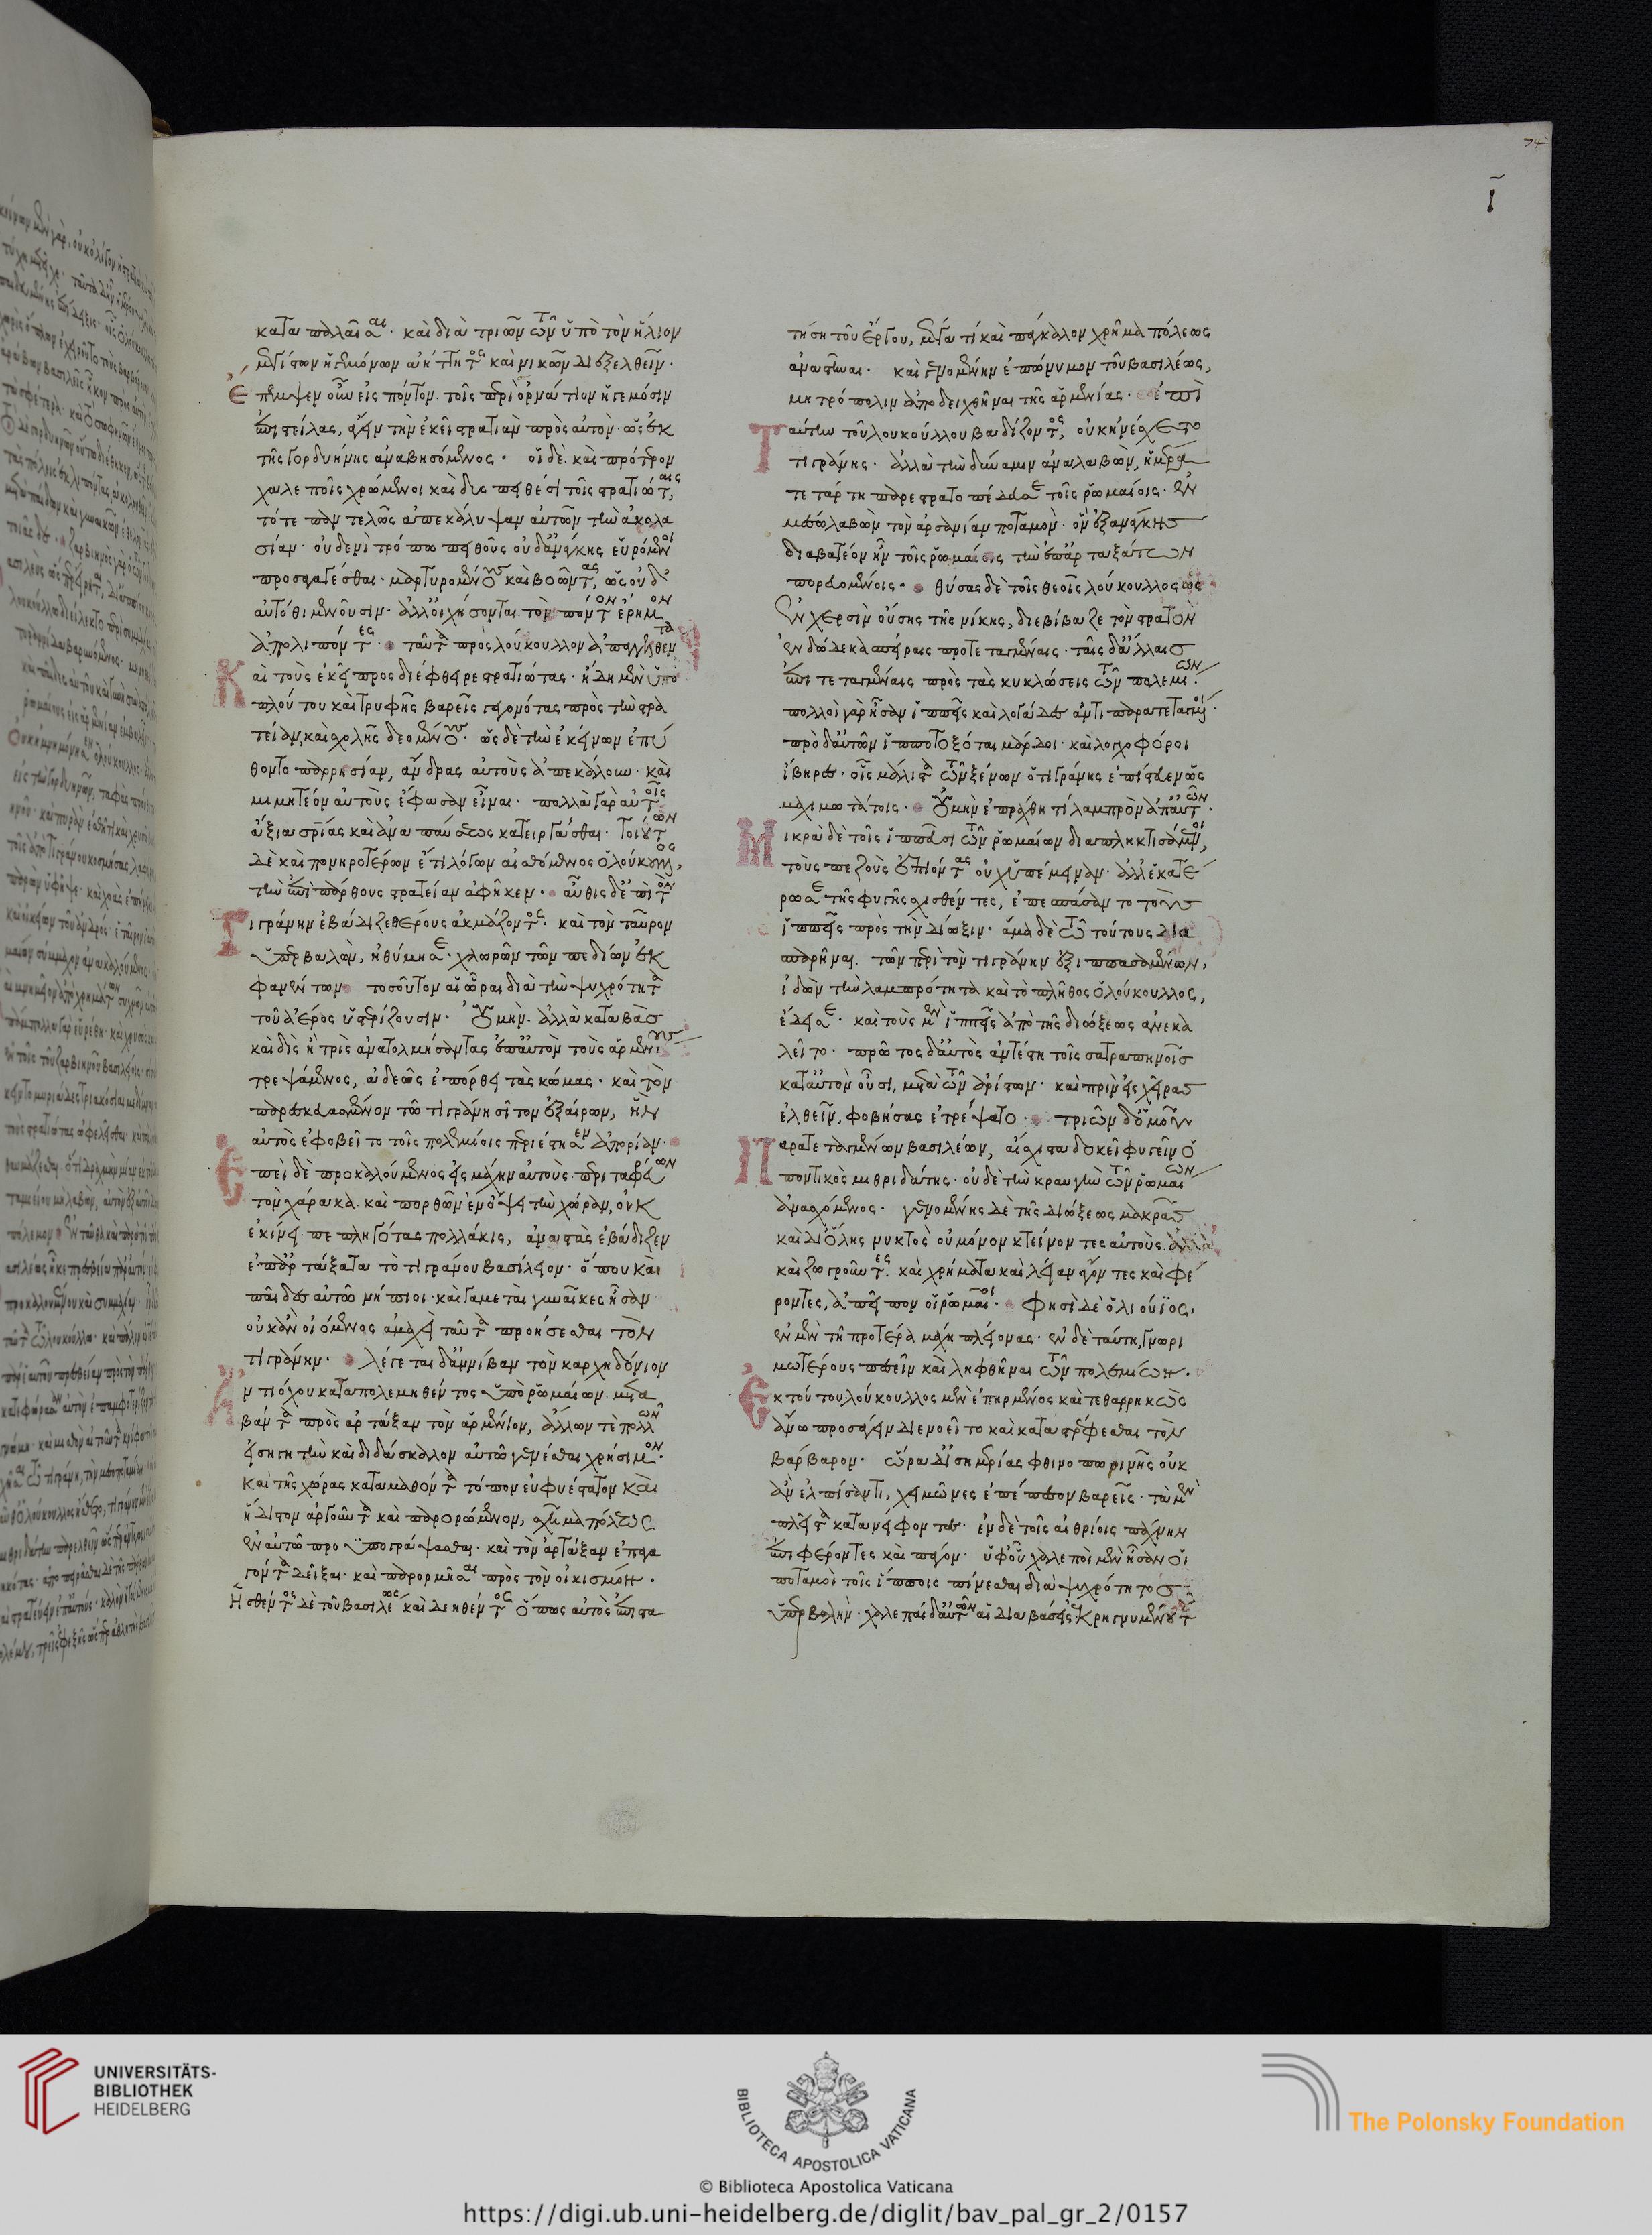 καταπαλαῖσαι. καὶ διὰ τριῶν τῶν ὑπὸ τὸν ἥλιον
μεγίστων ἡγεμόνων ἀήττητος καὶ νικῶν διεξελθεῖν.
Ἔπεμψεν οὖν εἰς πόντον τοῖς περὶ ὀρνάτιον ἡγεμόσιν
ἐπιστείλας, ἄγειν τὴν ἐκεῖ στρατιὰν πρὸς αὐτὸν. ὡς ἐκ
τῆς γορδυηνῆς ἀναβησόμενος. οἱ δὲ. καὶ πρότερον
χαλεποῖς χρώμενοι καὶ δυσπειθέσι τοῖς στρατιώταις,
τότε παντελῶς ἀπεκάλυψαν αὐτῶν τὴν ἀκολα
σίαν. οὐδενὶ τρόπω πειθοῦς οὐδ' ἀνάγκης εὑρόμενοι
προσαγαγέσθαι. μαρτυρομένους καὶ βοῶντας, ὡς οὐδ'
αὐτόθι μενοῦσιν. ἀλλ' οἰχήσονται τὸν πόντον ἔρημον
ἀπολιπόντες. ταῦτα πρὸς λούκουλλον ἀπαγγελθέντα
Καὶ τοὺς ἐκεῖ προσδιέφθειρε στρατιώτας. ἤδη μὲν ὑπὸ
πλούτου καὶ τρυφῆς βαρεῖς γεγονότας πρὸς τὴν στρα
τείαν, καὶ σχολῆς δεομένους. ὡς δὲ τὴν ἐκείνων ἐπύ
θοντο παρρησίαν, ἄνδρας αὐτοὺς ἀπεκάλουν. καὶ
μιμητέον αὐτοὺς ἔφασαν εἶναι. πολλὰ γὰρ αὐτοῖς
ἄξια σωτηρίας καὶ ἀναπαύσεως κατειργάσθαι. τοιούτων
δὲ καὶ πονηροτέρων ἔτι λόγων αἰσθόμενος ὁ λούκουλλος,
τὴν ἐπὶ πάρθους στρατείαν ἀφῆκεν. αὖθις δ' ἐπὶ τὸν
Τιγράνην ἐβάδιζε θέρους ἀκμάζοντος. καὶ τὸν ταῦρον
ὑπερβαλὼν, ἠθύμησε. χλωρῶν τῶν πεδίων ἐκ
φανέντων. τοσοῦτον αἱ ὧραι διὰ τὴν ψυχρότητα
τοῦ ἀέρος ὑστερίζουσιν. Οὐ μὴν ἀλλὰ καταβὰς
καὶ δὶς ἢ τρὶς ἀνατολμήσαντας ἐπ' αὐτὸν τοὺς ἀρμενίους
τρεψάμενος, ἀδεῶς ἐπόρθει τὰς κώμας. καὶ τὸν
παρεσκευασμένον τῶ τιγράνη σῖτον ἐξαίρων, ἣν
αὐτὸς ἐφοβεῖτο τοῖς πολεμίοις περιέστησεν ἀπορίαν.
Ἐπεὶ δὲ προκαλούμενος εἰς μάχην αὐτοὺς περιταφρεύων
τὸν χάρακα. καὶ πορθῶν ἐν ὄψει τὴν χώραν, οὐκ
ἐκίνει. πεπληγότας πολλάκις, ἀναστὰς ἐβάδιζεν
ἐπ' ἀρτάξατα τὸ τιγράνου βασίλειον. ὅπου καὶ
παῖδες αὐτῶ νήπιοι. καὶ γαμεταὶ γυναῖκες ἦσαν.
οὐκ ἂν οἰόμενος ἀμαχεὶ ταῦτα προήσεσθαι τὸν
τιγράνην. λέγεται δ' ἀννίβαν τὸν καρχηδόνιον
Ἀντιόχου καταπολεμηθέντος ὑπὸ ῥωμαίων. μετα
βάντα πρὸς ἀρτάξαν τὸν ἀρμένιον, ἄλλων τε πολλῶν
εἰσηγητὴν καὶ διδάσκαλον αὐτῶ γενέσθαι χρήσιμον.
καὶ τῆς χώρας καταμαθόντα τόπον εὐφυέστατον καὶ
ἥδιστον ἀργοῦντα καὶ παρορώμενον, σχῆμα πόλεως
ἐν αὐτῶ προϋπογράψασθαι. καὶ τὸν ἀρτάξαν ἐπαγα
γόντα δεῖξαι. καὶ παρορμῆσαι πρὸς τὸν οἰκισμόν.
Ἡσθέντος δὲ τοῦ βασιλέως καὶ δεηθέντος ὅπως αὐτὸς ἐπιστα
τήση τοῦ ἔργου, μέγα τι καὶ πάγκαλον χρῆμα πόλεως
ἀναστῆναι. καὶ γενομένην ἐπώνυμον τοῦ βασιλέως,
μητρόπολιν ἀποδειχθῆναι τῆς ἀρμενίας. ἐπὶ
Ταύτην τοῦ λουκούλλου βαδίζοντος, οὐκ ἠνέσχετο
τιγράνης. ἀλλὰ τὴν δύναμιν ἀναλαβὼν, ἡμέρα
τετάρτη παρεστρατοπέδευσε τοῖς ῥωμαίοις. ἐν
μέσω λαβὼν τὸν ἀρσανίαν ποταμὸν. ὃν ἐξ ἀνάγκης
διαβατέον ἦν τοῖς ῥωμαίοις τὴν ἐπ' ἀρταξάτων
πορευομένοις. θύσας δὲ τοῖς θεοῖς λούκουλλος ὡς
ἐν χερσὶν οὔσης τῆς νίκης, διεβίβαζε τὸν στρατὸν
ἐν δώδεκα σπείραις προτεταγμέναις. ταῖς δ' ἄλλαις
ἐπιτεταγμέναις πρὸς τὰς κυκλώσεις τῶν πολεμίων.
πολλοὶ γὰρ ἦσαν ἱππεῖς καὶ λογάδες ἀντιπαρατεταγμένοι.
πρὸ δ' αὐτῶν ἱπποτοξόται μάρδοι. καὶ λογχοφόροι
ἴβηρες. οἷς μάλιστα τῶν ξένων ὁ τιγράνης ἐπίστευεν ὡς
μαχιμωτάτοις. Οὐ μὴν ἐπράχθη τι λαμπρὸν ἀπ' αὐτῶν.
Μικρὰ δὲ τοῖς ἱππεῦσι τῶν ῥωμαίων διαπληκτισάμενοι,
τοὺς πεζοὺς ἐπιόντας οὐχ ὑπέμειναν. ἀλλ' ἑκατέ
ρωσε τῆς φυγῆς σχισθέντες, ἐπεσπάσαντο τοὺς
ἱππεῖς πρὸς τὴν δίωξιν. ἅμα δὲ τῶ τούτους δια
σπαρῆναι. τῶν περὶ τὸν τιγράνην ἐξιππασαμένων,
ἰδὼν τὴν λαμπρότητα καὶ τὸ πλῆθος ὁ λούκουλλος,
ἔδεισε. καὶ τοὺς μὲν ἱππεῖς ἀπὸ τῆς διώξεως ἀνεκα
λεῖτο. πρῶτος δ' αὐτὸς ἀντέστη τοῖς σατραπηνοῖς
κατ' αὐτὸν οὖσι, μετὰ τῶν ἀρίστων. καὶ πρὶν εἰς χεῖρας
ἐλθεῖν, φοβήσας ἐτρέψατο. τριῶν δ' ὁμοῦ
Παρατεταγμένων βασιλέων, αἴσχιστα δοκεῖ φυγεῖν ὁ
ποντικὸς μιθριδάτης. οὐδὲ τὴν κραυγὴν τῶν ῥωμαίων
ἀνασχόμενος. γενομένης δὲ τῆς διώξεως μακρᾶς
καὶ δι' ὅλης νυκτὸς οὐ μόνον κτείνοντες αὐτοὺς. ἀλλὰ
καὶ ζωγροῦντες. καὶ χρήματα καὶ λείαν ἄγοντες καὶ φέ
ροντες, ἀπεῖπον οἱ ῥωμαῖοι. Φησὶ δὲ ὁ λιούϊος,
ἐν μὲν τῆ προτέρα μάχη πλείονας. ἐν δὲ ταύτη, γνωρι
μωτέρους πεσεῖν καὶ ληφθῆναι τῶν πολεμίων.
Ἐκ τούτου λούκουλλος μὲν ἐπηρμένος καὶ τεθαρρηκὼς
ἄνω προσάγειν διενοεῖτο καὶ καταστρέφεσθαι τὸν
βάρβαρον. ὥρα δ' ἰσημερίας φθινοπωρινῆς οὐκ
ἂν ἐλπίσαντι, χειμῶνες ἐπέπεσον βαρεῖς. τὰ μὲν
πλεῖστα κατανείφοντες. ἐν δὲ τοῖς αἰθρίοις πάχνην
ἐπιφέροντες καὶ πάγον. ὑφ' οὗ χαλεποὶ μὲν ἦσαν οἱ
ποταμοὶ τοῖς ἵπποις πίνεσθαι διὰ ψυχρότητος
ὑπερβολὴν. χαλεπαὶ δ' αὐτῶν αἱ διαβάσεις. κρηγνυμένου τ